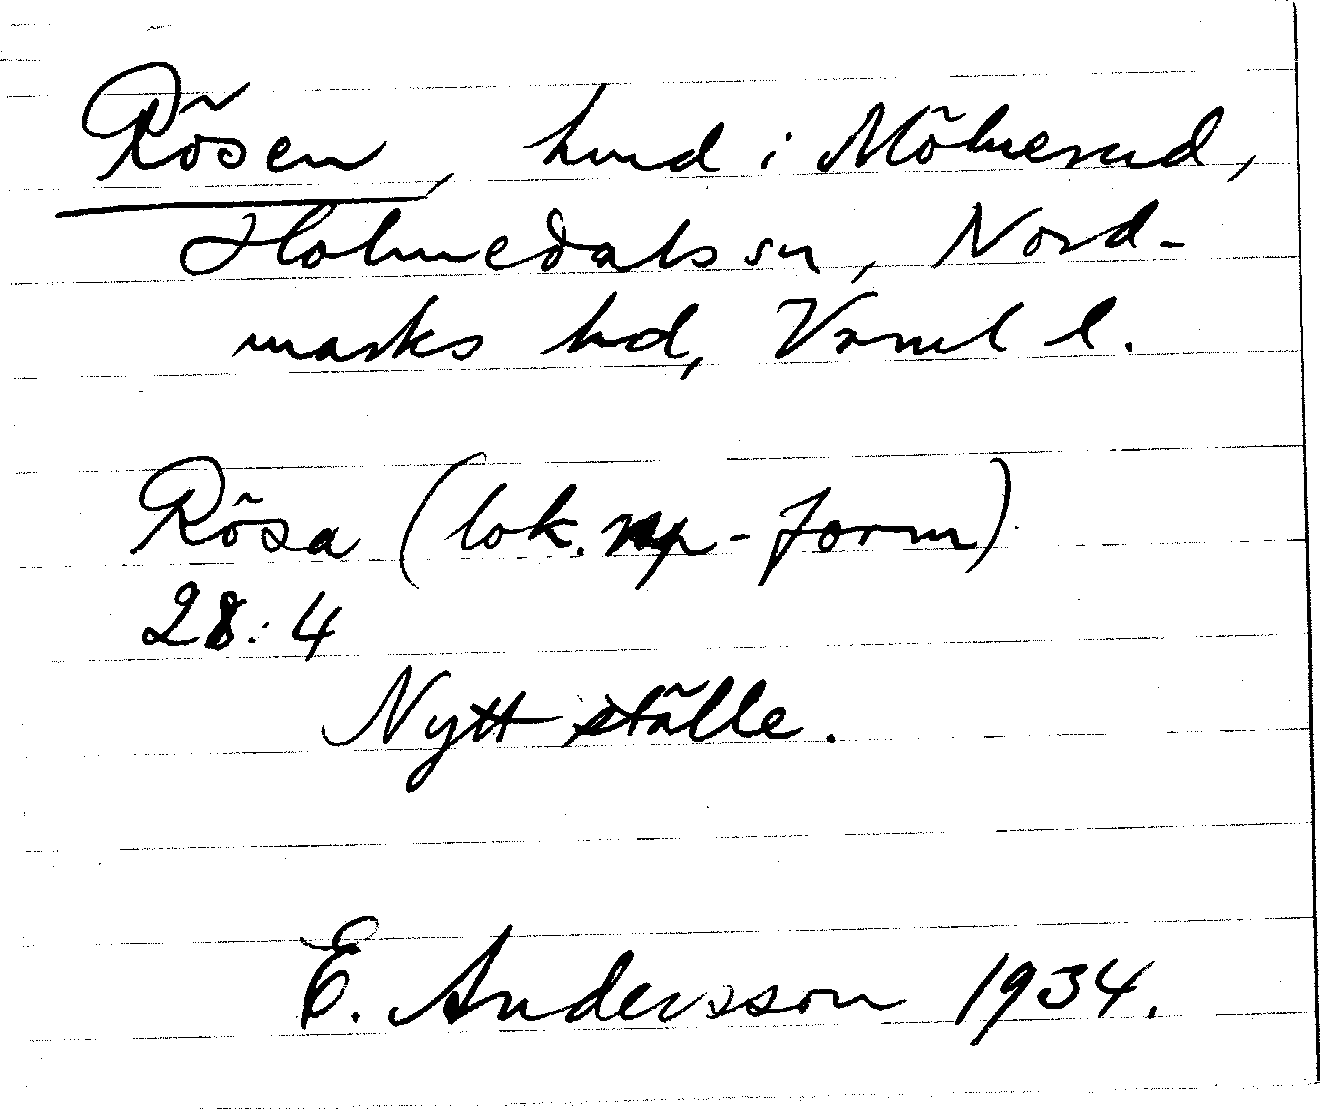 Rösen, lmd i Mölnerud,
Holmedals sn, Nord-
marks hd, Värml l.
Rösa (lok. np-form)
28:4
Nytt ställe.
E. Andersson 1934.